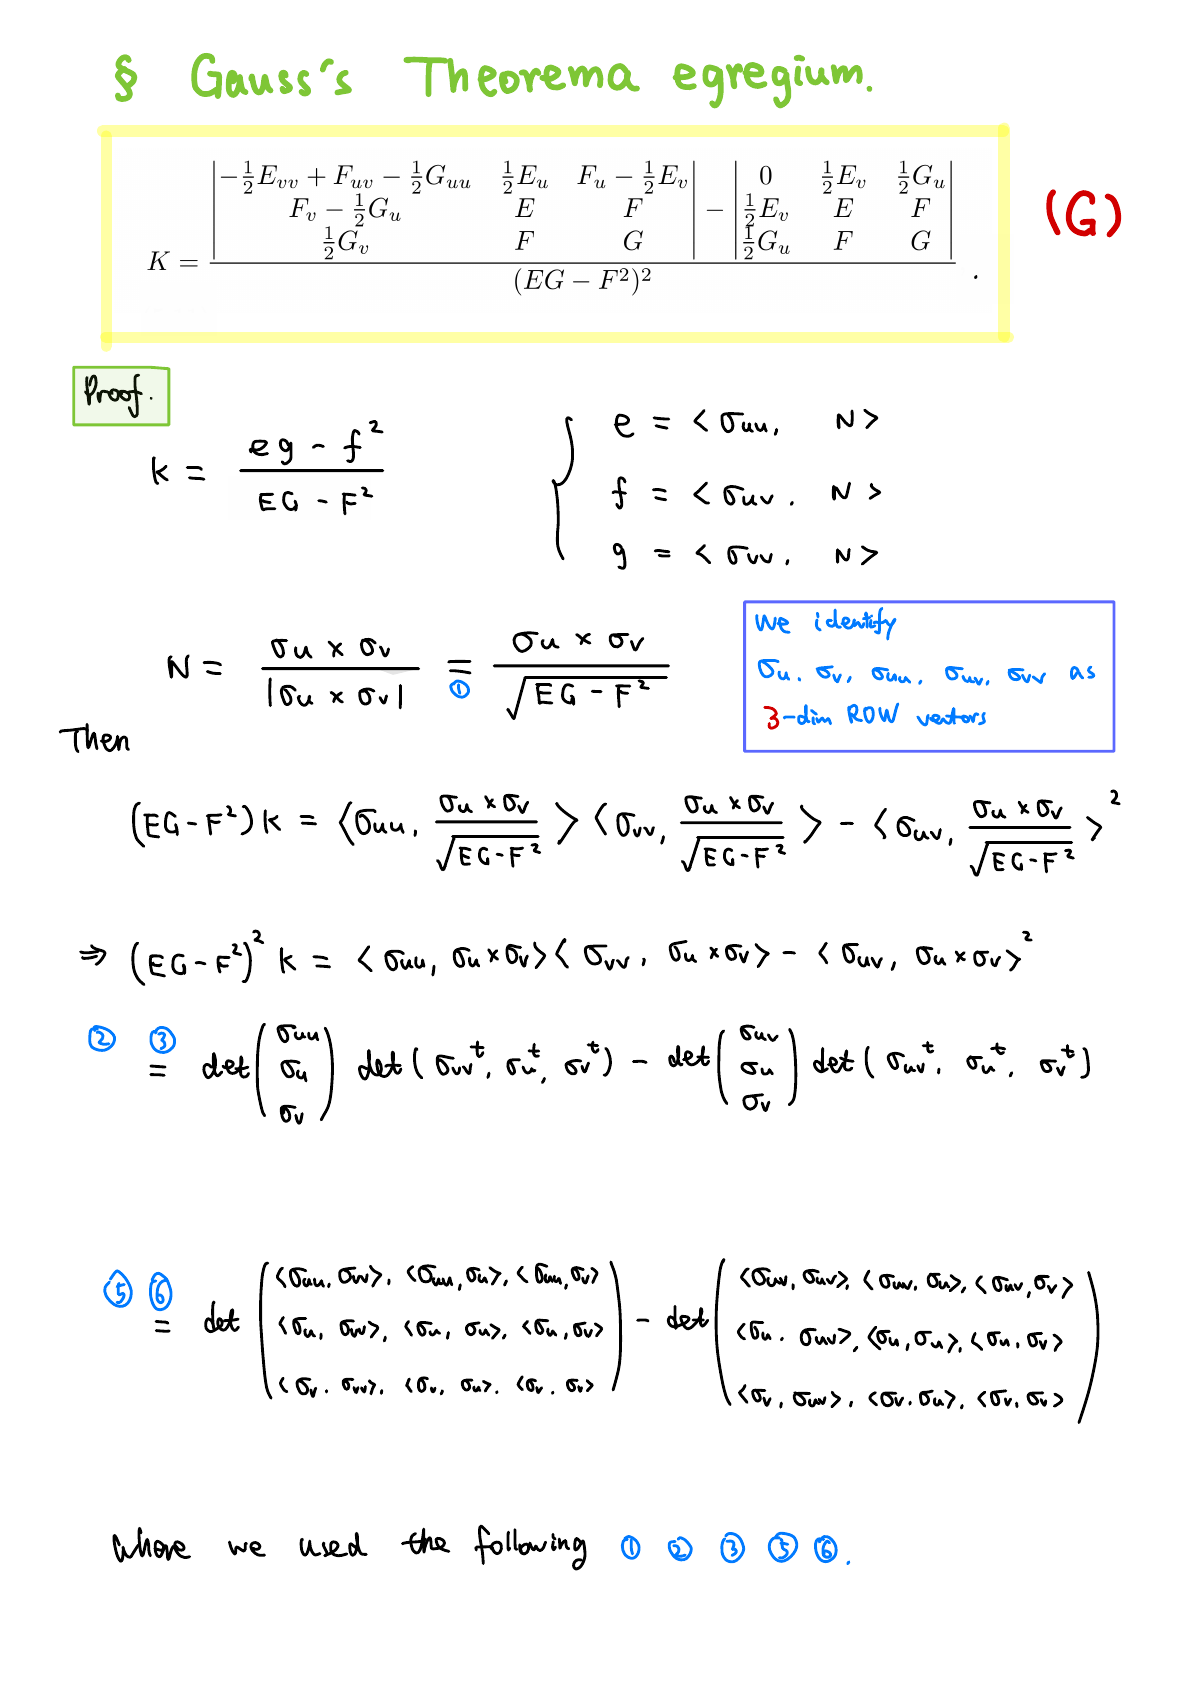 § Gauss's Theorema egregium.
K = \frac{\begin{vmatrix} -\frac{1}{2}E_{vv} + F_{uv} - \frac{1}{2}G_{uu} & \frac{1}{2}E_u & F_u - \frac{1}{2}E_v \\ F_v - \frac{1}{2}G_u & E & F \\ \frac{1}{2}G_v & F & G \end{vmatrix} - \begin{vmatrix} 0 & \frac{1}{2}E_v & \frac{1}{2}G_u \\ \frac{1}{2}E_v & E & F \\ \frac{1}{2}G_u & F & G \end{vmatrix}}{(EG - F^2)^2} . (G)
Proof.
K = \frac{eg - f^2}{EG - F^2}
e = < σ_{uu}, N >
f = < σ_{uv}. N >
g = < σ_{vv}. N >
N = \frac{σ_u × σ_v}{|σ_u × σ_v|} =_① \frac{σ_u × σ_v}{\sqrt{EG - F^2}}
We identify
σ_u. σ_v, σ_{uu}. σ_{uv}, σ_{vv} as
3-dim ROW vectors
Then
(EG - F^2) K = < σ_{uu}, \frac{σ_u × σ_v}{\sqrt{EG - F^2}} > < σ_{vv}, \frac{σ_u × σ_v}{\sqrt{EG - F^2}} > - < σ_{uv}, \frac{σ_u × σ_v}{\sqrt{EG - F^2}} >^2
⇒ (EG - F^2)^2 K = < σ_{uu}, σ_u × σ_v > < σ_{vv}, σ_u × σ_v > - < σ_{uv}, σ_u × σ_v >^2
② ③ = det \begin{pmatrix} σ_{uu} \\ σ_u \\ σ_v \end{pmatrix} det ( σ_{vv}^t, σ_u^t, σ_v^t ) - det \begin{pmatrix} σ_{uv} \\ σ_u \\ σ_v \end{pmatrix} det ( σ_{uv}^t, σ_u^t, σ_v^t )
⑤ ⑥ = det \begin{pmatrix} <σ_{uu}, σ_{vv}>, <σ_{uu}, σ_u>, <σ_{uu}, σ_v> \\ <σ_u, σ_{vv}>, <σ_u, σ_u>, <σ_u, σ_v> \\ <σ_v. σ_{vv}>, <σ_v, σ_u>. <σ_v. σ_v> \end{pmatrix} - det \begin{pmatrix} <σ_{uv}, σ_{uv}>, <σ_{uv}, σ_u>, <σ_{uv}, σ_v> \\ <σ_u. σ_{uv}>, <σ_u, σ_u>, <σ_u. σ_v> \\ <σ_v, σ_{uv}>, <σ_v. σ_u>, <σ_v, σ_v> \end{pmatrix}
Where we used the following ① ② ③ ⑤ ⑥.